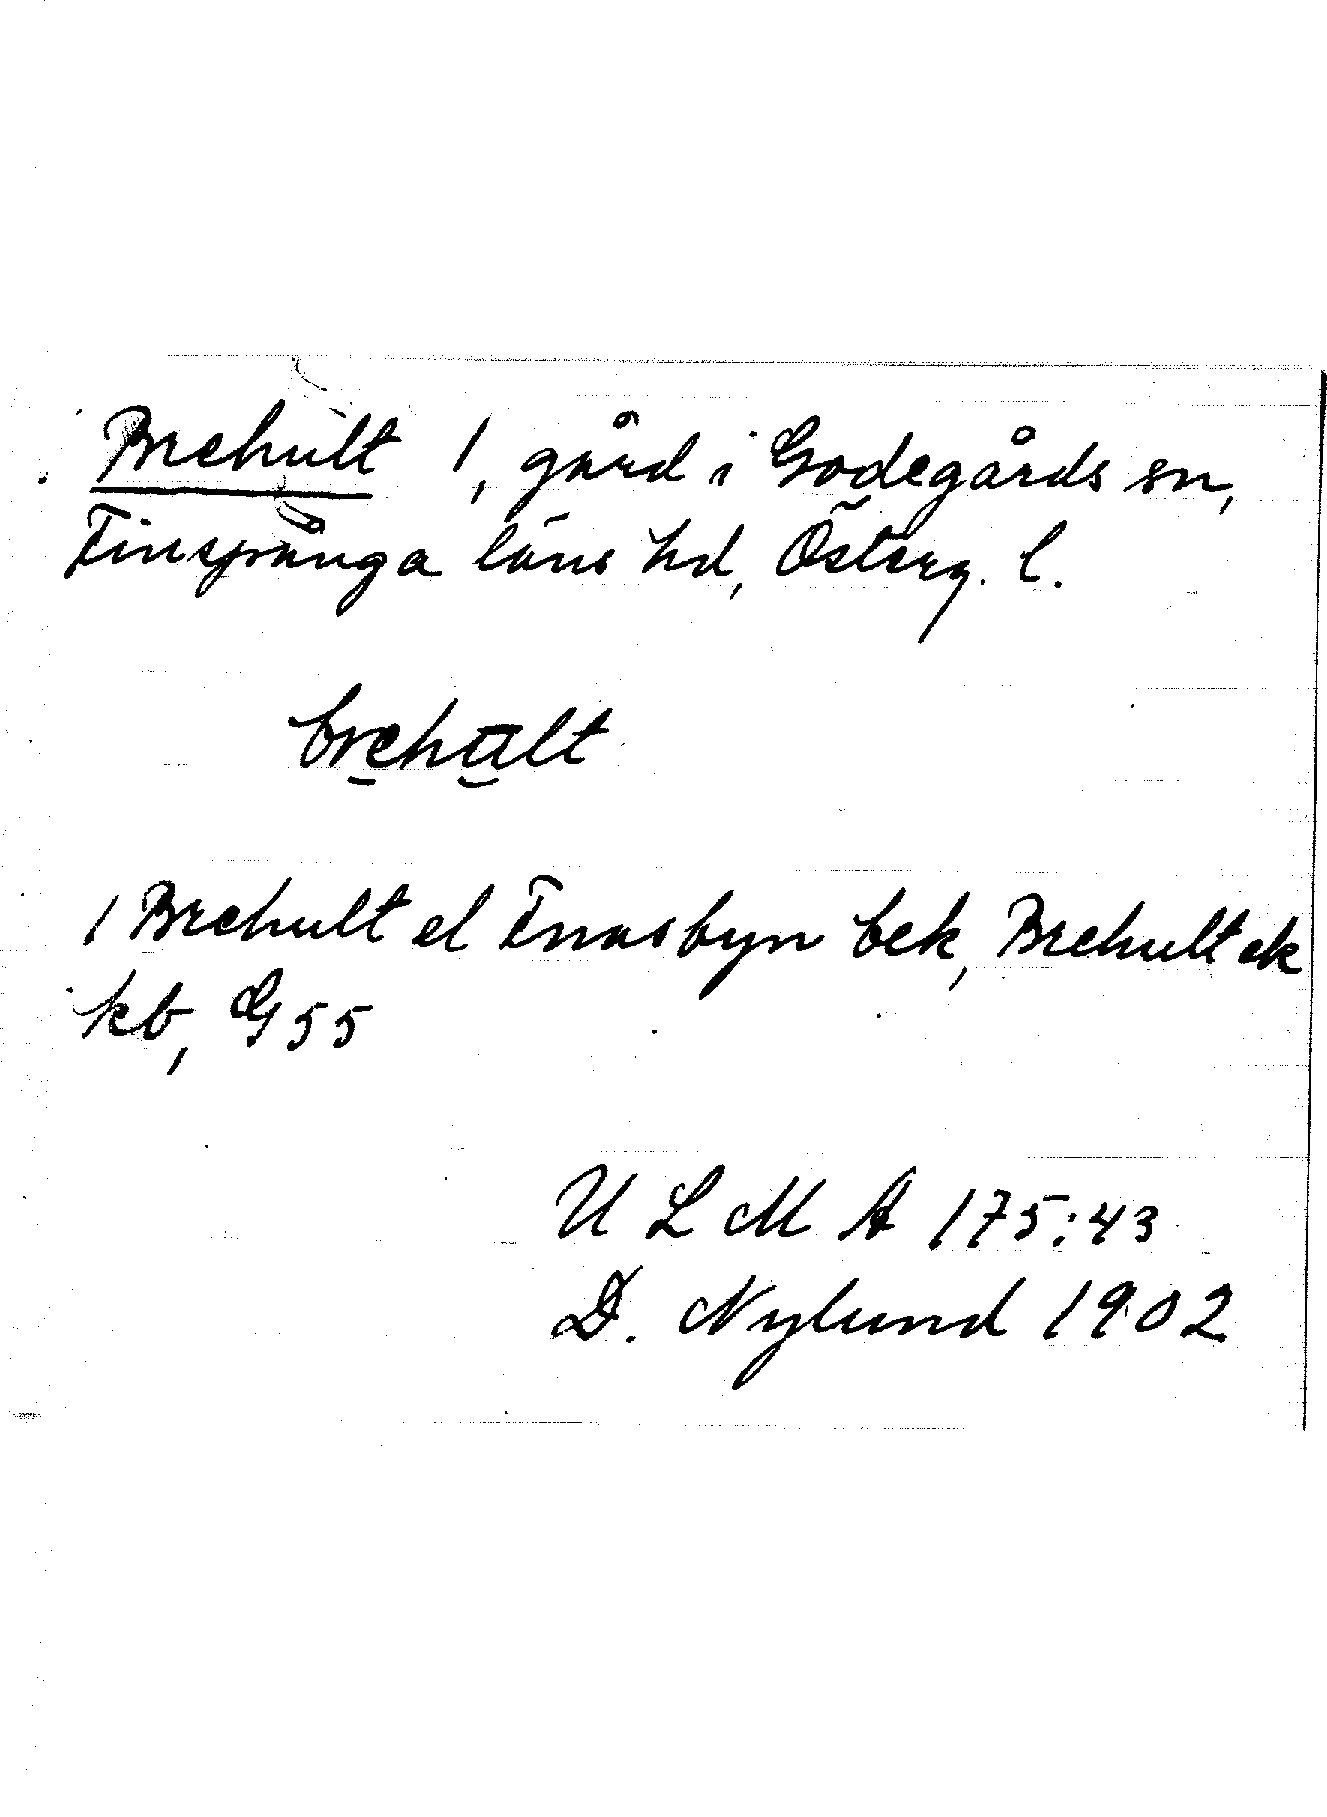 Brehult 1, gård i Godegårds sn,
Finspånga läns hd, Österg. l.
brehult
1 Brehult el bek, Brehult ek
kb, G55
U L M A 175:43
D. Nylund 1902